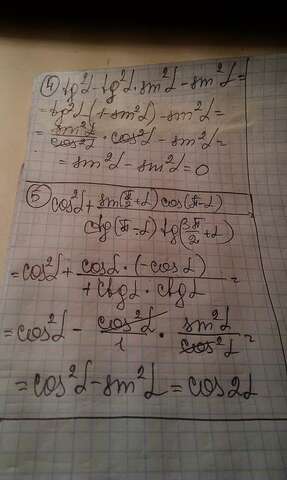 ④ tg²α - tg²α · sin²α - sin²α =
= tg²α (1 - sin²α) - sin²α =
= sin²α / cos²α · cos²α - sin²α =
= sin²α - sin²α = 0
⑤ cos²α + sin(π/2 + α) cos(π - α) / ctg(π - α) tg(3π/2 + α)
= cos²α + cosα · (-cosα) / + ctgα · ctgα =
= cos²α - cos²α / 1 · sin²α / cos²α =
= cos²α - sin²α = cos2α